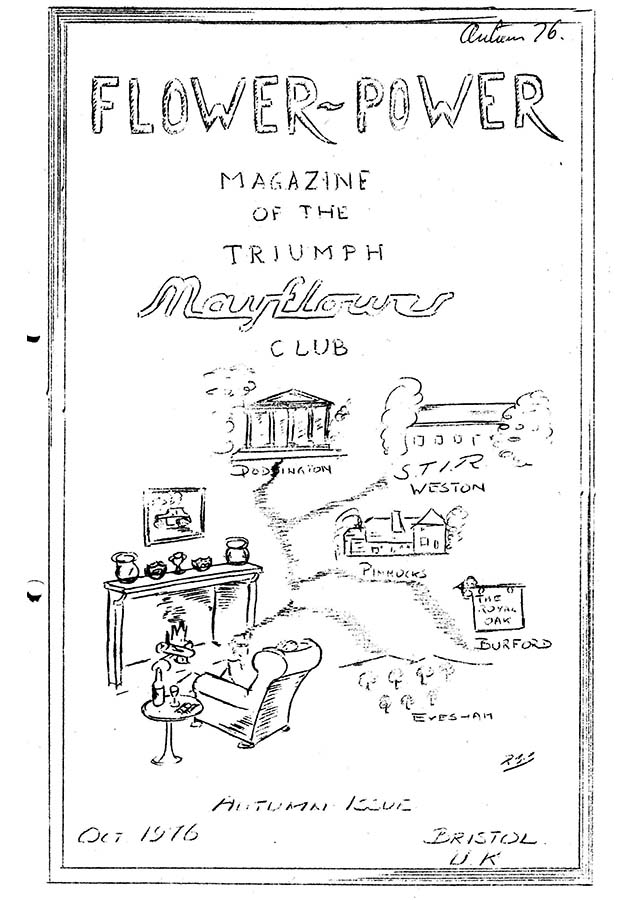 Autumn 76.
FLOWER~POWER
MAGAZINE
OF THE
TRIUMPH
Mayflower
CLUB
DODDINGTON
S.T.I.R.
WESTON
PINNOCKS
THE
ROYAL
OAK
BURFORD
EVESHAM
AUTUMN ISSUE
OCT 1976
BRISTOL.
U.K